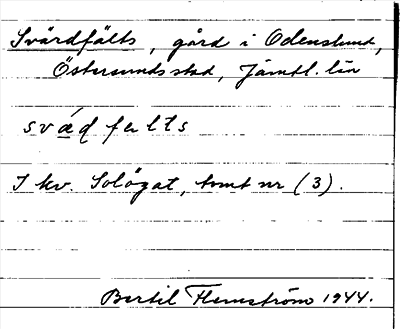 Svärdfälts, gård i Odenslund,
Östersunds stad, Jämtl. län
svǽdfalts
I kv. Solögat, tomt nr (3).
Bertil Flemström 1944.